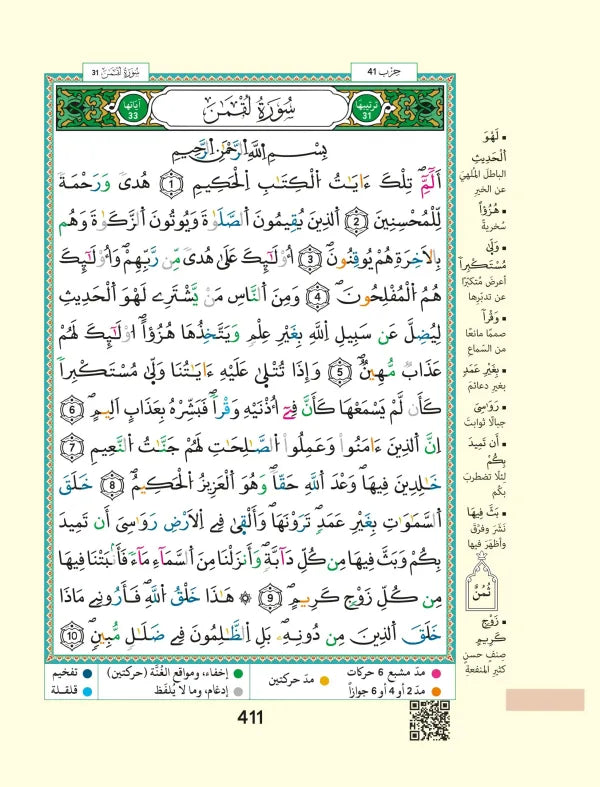 سُورَةُ لُقْمَٰنَ 31
حِزْب 41
آيَاتُهَا 33
سُورَةُ لُقْمَٰنَ
تَرْتِيبُهَا 31
بِسْمِ اِ۬للَّهِ اِ۬لرَّحْمَٰنِ اِ۬لرَّحِيمِ
أَلَٓمِّٓۖ تِلْكَ ءَايَٰتُ اُ۬لْكِتَٰبِ اِ۬لْحَكِيمِ 1 هُدىٗ وَرَحْمَةٗ
لِّلْمُحْسِنِينَ 2 اَ۬لذِينَ يُقِيمُونَ اَ۬لصَّلَوٰةَ وَيُوتُونَ اَ۬لزَّكَوٰةَ وَهُم
بِالَاخِرَةِ هُمْ يُوقِنُونَۖ 3 أُوْلَٰٓئِكَ عَلَىٰ هُدىٗ مِّن رَّبِّهِمْۖ وَأُوْلَٰٓئِكَ
هُمُ اُ۬لْمُفْلِحُونَۖ 4 وَمِنَ اَ۬لنَّاسِ مَنْ يَّشْتَرِے لَهْوَ اَ۬لْحَدِيثِ
لِيُضِلَّ عَن سَبِيلِ اِ۬للَّهِ بِغَيْرِ عِلْمٖ وَيَتَّخِذُهَا هُزُؤاًۖ اُوْلَٰٓئِكَ لَهُمْ
عَذَابٞ مُّهِينٞۖ 5 وَإِذَا تُتْلَىٰ عَلَيْهِ ءَايَٰتُنَا وَلَّىٰ مُسْتَكْبِراٗ
كَأَن لَّمْ يَسْمَعْهَا كَأَنَّ فِےٓ أُذْنَيْهِ وَقْراٗۖ فَبَشِّرْهُ بِعَذَابٍ اَلِيمٍۖ 6
اِنَّ اَ۬لذِينَ ءَامَنُواْ وَعَمِلُواْ اُ۬لصَّٰلِحَٰتِ لَهُمْ جَنَّٰتُ اُ۬لنَّعِيمِ 7
خَٰلِدِينَ فِيهَا وَعْدَ اَ۬للَّهِ حَقّاٗۖ وَهُوَ اَ۬لْعَزِيزُ اُ۬لْحَكِيمُۖ 8 خَلَقَ
اَ۬لسَّمَٰوَٰتِ بِغَيْرِ عَمَدٖ تَرَوْنَهَاۖ وَأَلْقَىٰ فِے اِ۬لَارْضِ رَوَٰسِيَ أَن تَمِيدَ
بِكُمْ وَبَثَّ فِيهَا مِن كُلِّ دَآبَّةٖۖ وَأَنزَلْنَا مِنَ اَ۬لسَّمَآءِ مَآءٗ فَأَنۢبَتْنَا فِيهَا
مِن كُلِّ زَوْجٖ كَرِيمٍۖ 9 ۞ هَٰذَا خَلْقُ اُ۬للَّهِۖ فَأَرُونِے مَاذَا
خَلَقَ اَ۬لذِينَ مِن دُونِهِۦۖ بَلِ اِ۬لظَّٰلِمُونَ فِے ضَلَٰلٖ مُّبِينٖۖ 10
▪ لَهْوَ
اَ۬لْحَدِيثِ
الباطلَ المُلهِيَ
عن الخيرِ
▪ هُزُؤاً
سُخرِيةً
▪ وَلَّىٰ
مُسْتَكْبِراٗ
أعرضَ مُتكبّرًا
عن تدبّرِها
▪ وَقْراٗ
صممًا مانعًا
من السّماعِ
▪ بِغَيْرِ عَمَدٖ
بغيرِ دعائمَ
▪ رَوَٰسِيَ
جبالًا ثوابتَ
▪ أَن تَمِيدَ
بِكُمْ
لئلّا تضطربَ
بكُم
▪ بَثَّ فِيهَا
نَشَرَ وفرَّقَ
وأظهرَ فيها
ثُمُنٌ
▪ زَوْجٖ
كَرِيمٍ
صِنفٍ حسنٍ
كثيرِ المنفعةِ
مدّ مشبع 6 حركات
مدّ 2 أو 4 أو 6 جوازاً
مدّ حركتين
إخفاء، ومواقع الغُنَّة (حركتين)
إدغام، وما لا يُلفَظ
تفخيم
قلقلة
411